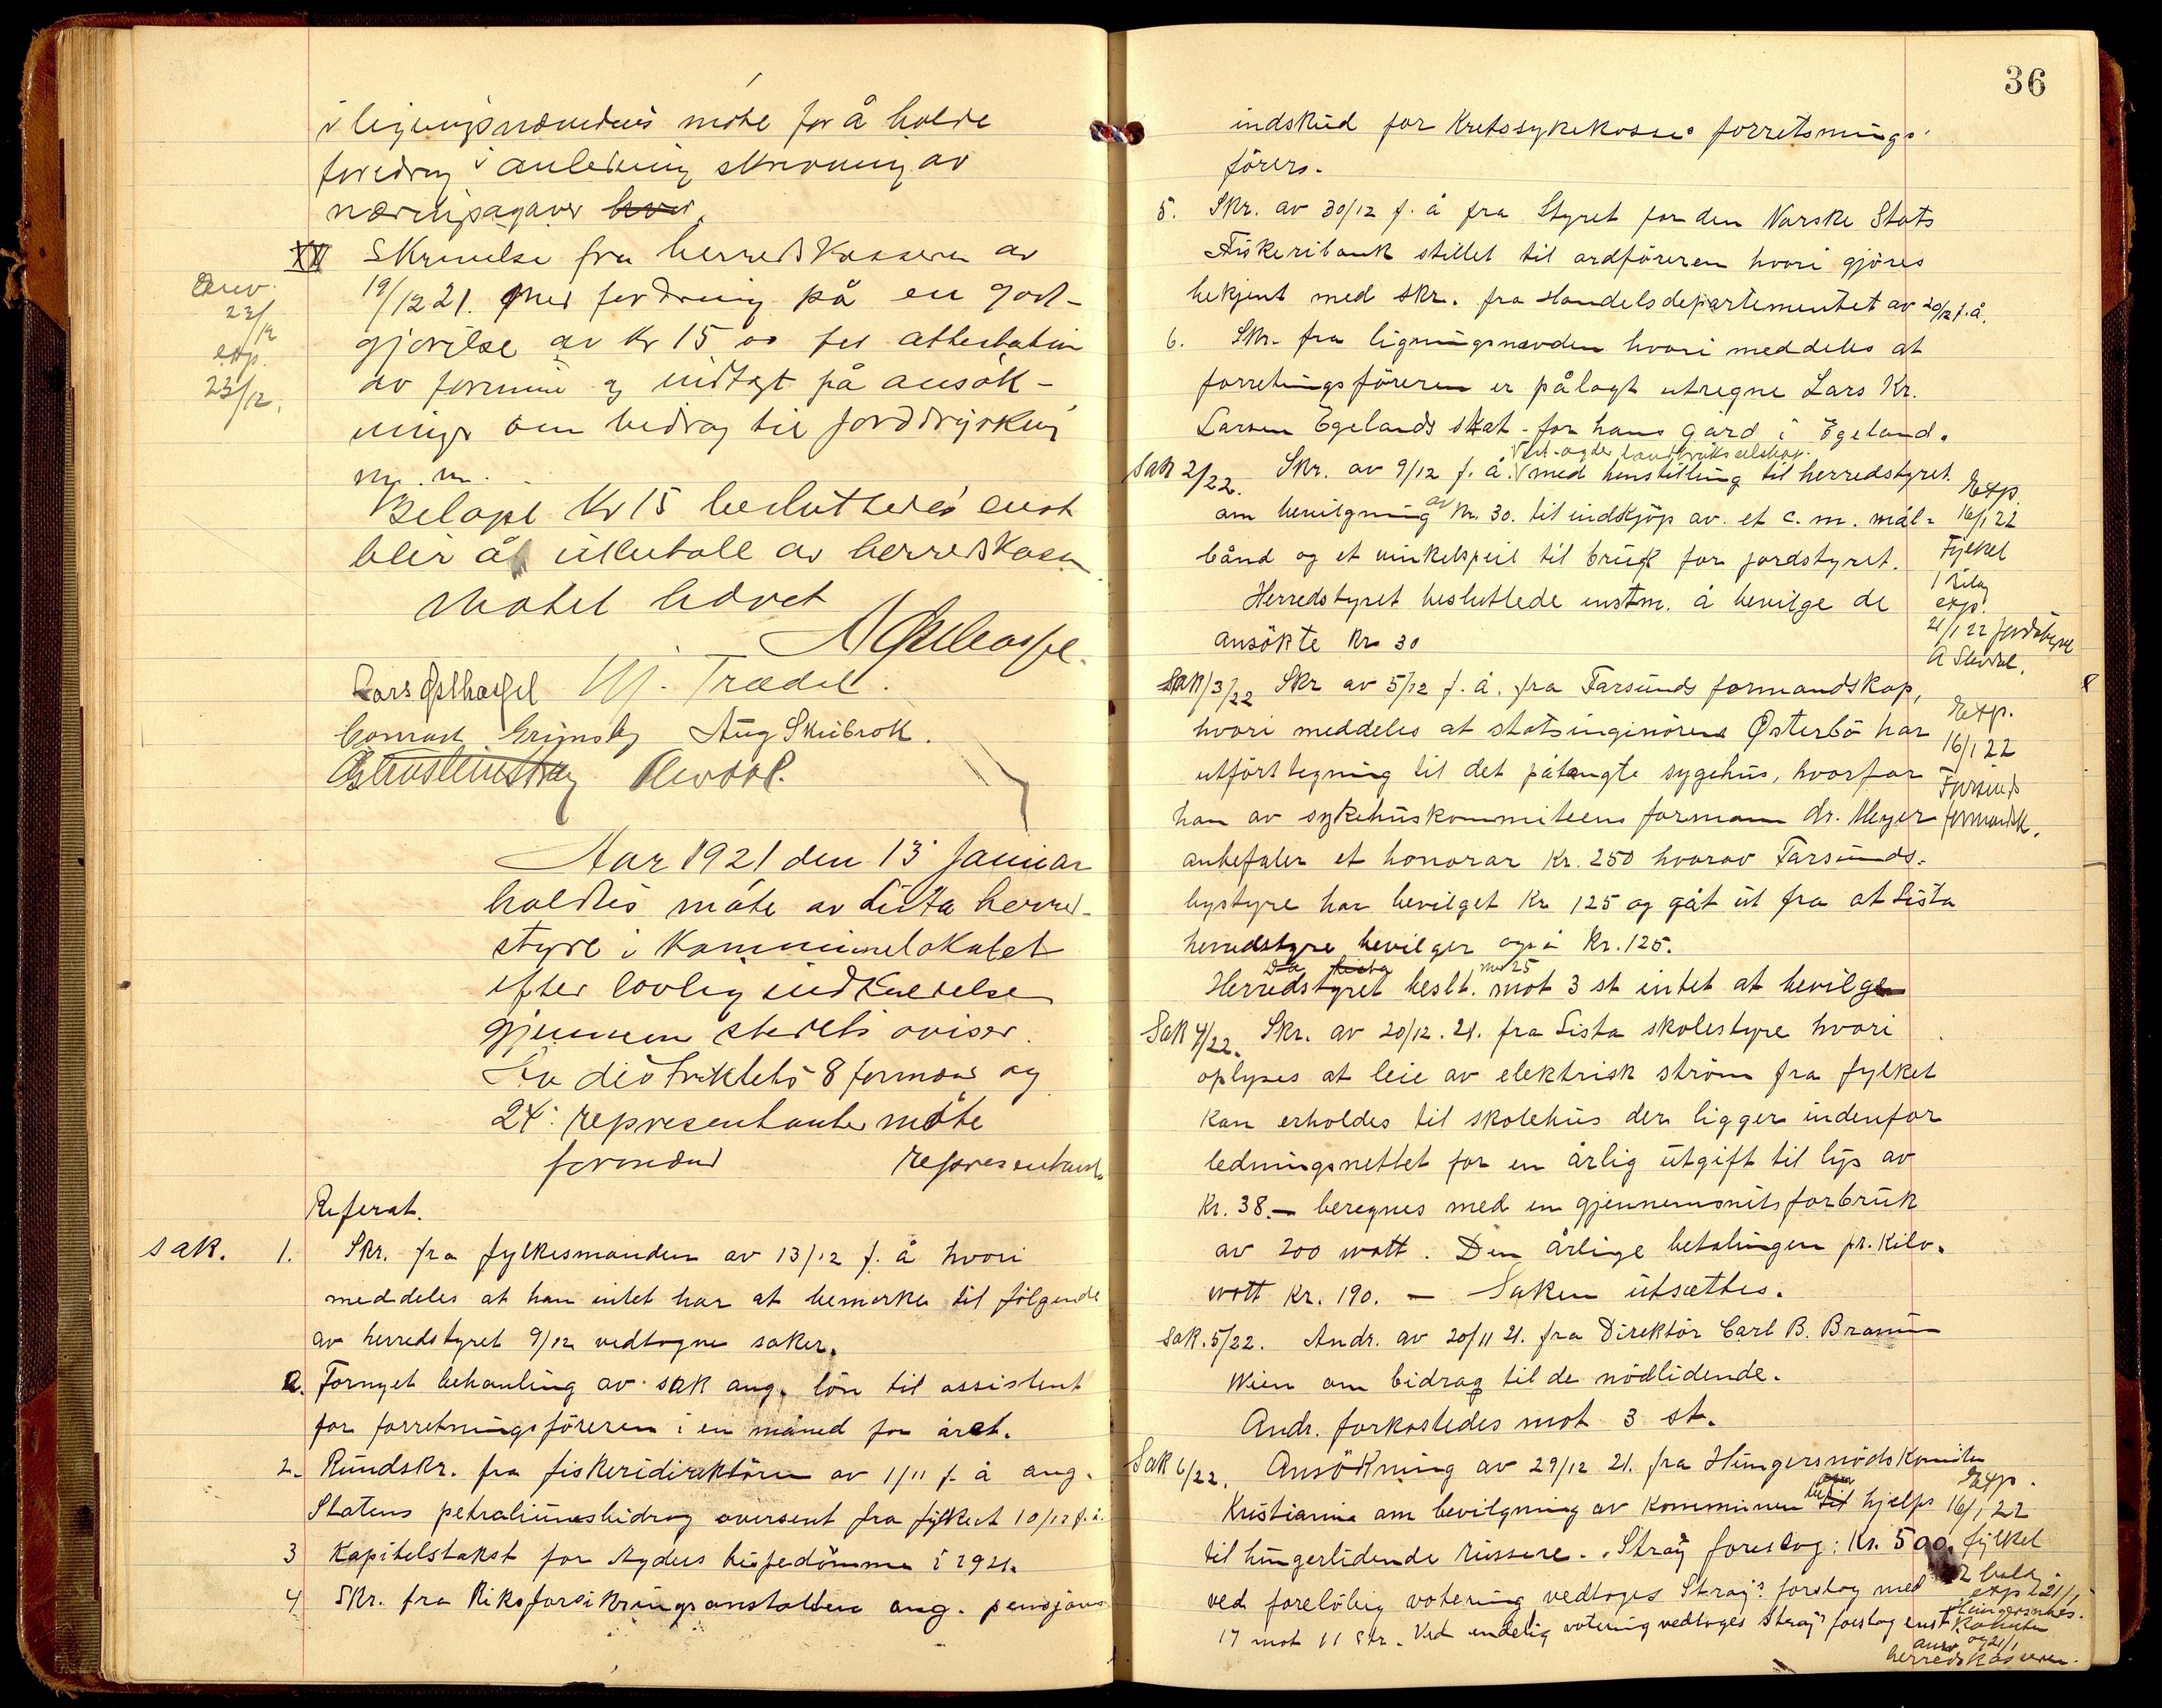 i ligningsnævndens møte for å holde
foredrag i anledning skrivning av
næringsopgaver hver.
XV Skrivelse fra herredskasseren av
19/12 21. med fordring på en godt-
gjørelse av kr 15 00 for attestation
av formue og indtægt på ansøk-
ninger om bidrag til jorddyrkning
m. m.
Anv.
23/12
exp.
23/12.
Beløpet kr 15 besluttedes enst
blir å utbetale av herredskassen.
Møtet hævet
Lars Østhassel M. Trædal.
Conrad Grimsby Aug Skeibrok.
Aar 1921 den 13 Januar
holdtes møte av Lista herred-
styre i Kommunelokalet
efter lovlig indkaldelse
gjennem stedets aviser.
Av distriktets 8 formænd og
24 representanter møtte
formænd representanter
Referat.
sak. 1. Skr. fra fylkesmanden av 13/12 f. å hvori
meddeles at han intet har at bemerke til følgende
av herredstyret 9/12 vedtagne saker.
2. Fornyet behanling av sak ang. lön til assistent
for forretningsföreren i en måned for året.
2. Rundskr. fra fiskeridirektören av 1/11 f. å ang.
Statens petroliumsbidrag oversent fra fylket 10/12 f. å.
3 Kapitelstakst for Agders bispedömme i 1921.
4 Skr. fra Riksforsikringsanstalten ang. pensjons
36
indskud for Kretssykekasse forretnings
förers.
5. Skr. av 30/12 f. å fra Styret for den Norske Stats
Fiskeribank stillet til ordföreren hvori gjöres
bekjent med skr. fra Handelsdepartementet av 20/12 f. å.
6. Skr. fra ligningsnævden hvori meddeles at
forretningsföreren er pålagt utregne Lars Kr.
Larsen Egelands skat for hans gård i Egeland.
Vest-agder landbrukselskap.
Sak 2/22. Skr. av 9/12 f. å. med henstilling til herredstyret
om bevilgning av Kr. 30. til indkjöp av et c. m. mål-
bånd og et vinkelspeil til bruk for jordstyret.
Herredstyret besluttede enstm. å bevilge de
ansökte Kr 30
Exp.
16/1 22
Fylket
1 Bilag
exp.
21/1 22 jordstyret
Sak 3/22 Skr av 5/12 f. å. fra Farsunds formandskap,
hvori meddeles at statsinginören Österbö har
utfört tegning til det påtængte sygehus, hvorfor
han av sykehuskommiteens formann dr. Meyer
anbefaler et honorar Kr. 250 hvorav Farsunds-
bystyre har bevilget Kr 125 og gåt ut fra at Lista
herredstyre bevilger også Kr. 125.
Exp.
16/1 22
Farsunds
formandsk.
Herredstyret beslt. med 25 mot 3 st intet at bevilge
Sak 4/22. Skr. av 20/12. 21. fra Lista skolestyre hvori
oplyses at leie av elektrisk ström fra fylket
kan erholdes til skolehus der ligger indenfor
ledningsnettet for en årlig utgift til lys av
Kr. 38.— beregnes med en gjennemsnits forbruk
av 200 watt. Den årlige betalingen pr. Kilo-
watt Kr. 190. — Saken utsættes.
Sak. 5/22. Andr. av 20/11 21. fra Direktör Carl B. Bramm
Wien om bidrag til de nödlidende.
Andr. forkastedes mot 3 st.
Sak 6/22. Ansökning av 29/12 21. fra Hungersnöds Komiten
Kristiania om bevilgning av kommunen til hjelp
til hungerlidende russere. Stray foreslog: Kr. 500.
ved forelöbig votering vedtoges Stray's forslag med
17 mot 11 str. Ved endelig votering vedtoges Stray's forslag enst.
Exp.
16/1 22
fylket
2 bilag
exp. 21/1
Hungersnöds.
Komiten
anv. og 21/1
herredskasseren.